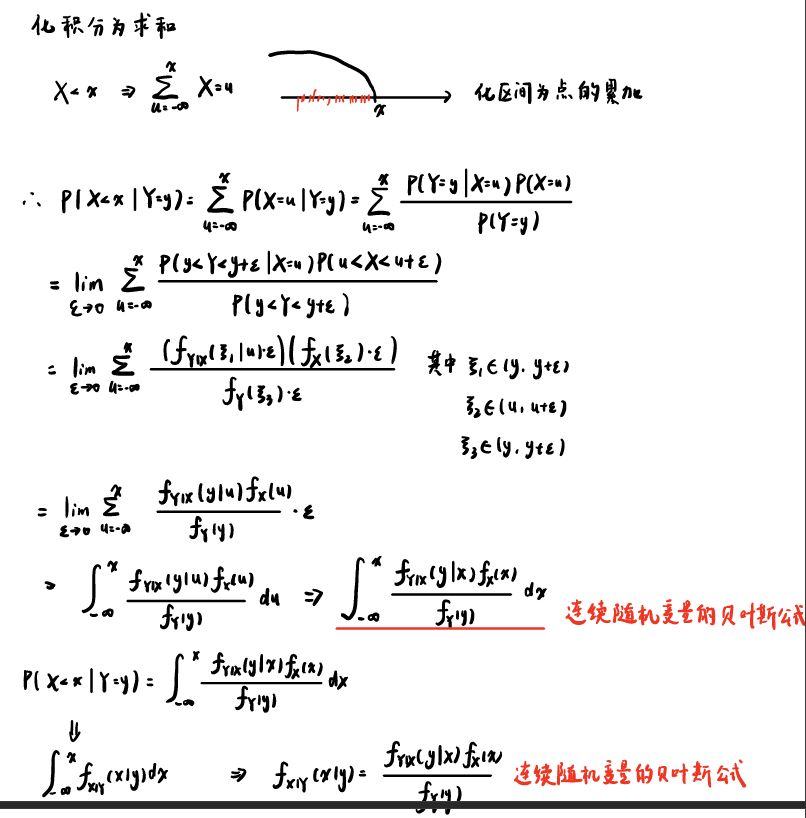 化积分为求和
X<x ⇒ ∑_{u=-∞}^{x} X=u x 化区间为点的累加
∴ P(X<x|Y=y) = ∑_{u=-∞}^{x} P(X=u|Y=y) = ∑_{u=-∞}^{x} P(Y=y|X=u)P(X=u) / P(Y=y)
= lim_{ε→0} ∑_{u=-∞}^{x} P(y<Y<y+ε|X=u)P(u<X<u+ε) / P(y<Y<y+ε)
= lim_{ε→0} ∑_{u=-∞}^{x} (f_{Y|X}(ξ₁|u)·ε)(f_X(ξ₂)·ε) / f_Y(ξ₃)·ε 其中 ξ₁∈(y, y+ε)
ξ₂∈(u, u+ε)
ξ₃∈(y, y+ε)
= lim_{ε→0} ∑_{u=-∞}^{x} f_{Y|X}(y|u)f_X(u) / f_Y(y) · ε
= ∫_{-∞}^{x} f_{Y|X}(y|u)f_X(u) / f_Y(y) du ⇒ ∫_{-∞}^{x} f_{Y|X}(y|x)f_X(x) / f_Y(y) dx 连续随机变量的贝叶斯公式
P(X<x|Y=y) = ∫_{-∞}^{x} f_{Y|X}(y|x)f_X(x) / f_Y(y) dx
⇓
∫_{-∞}^{x} f_{X|Y}(x|y)dx ⇒ f_{X|Y}(x|y) = f_{Y|X}(y|x)f_X(x) / f_Y(y) 连续随机变量的贝叶斯公式